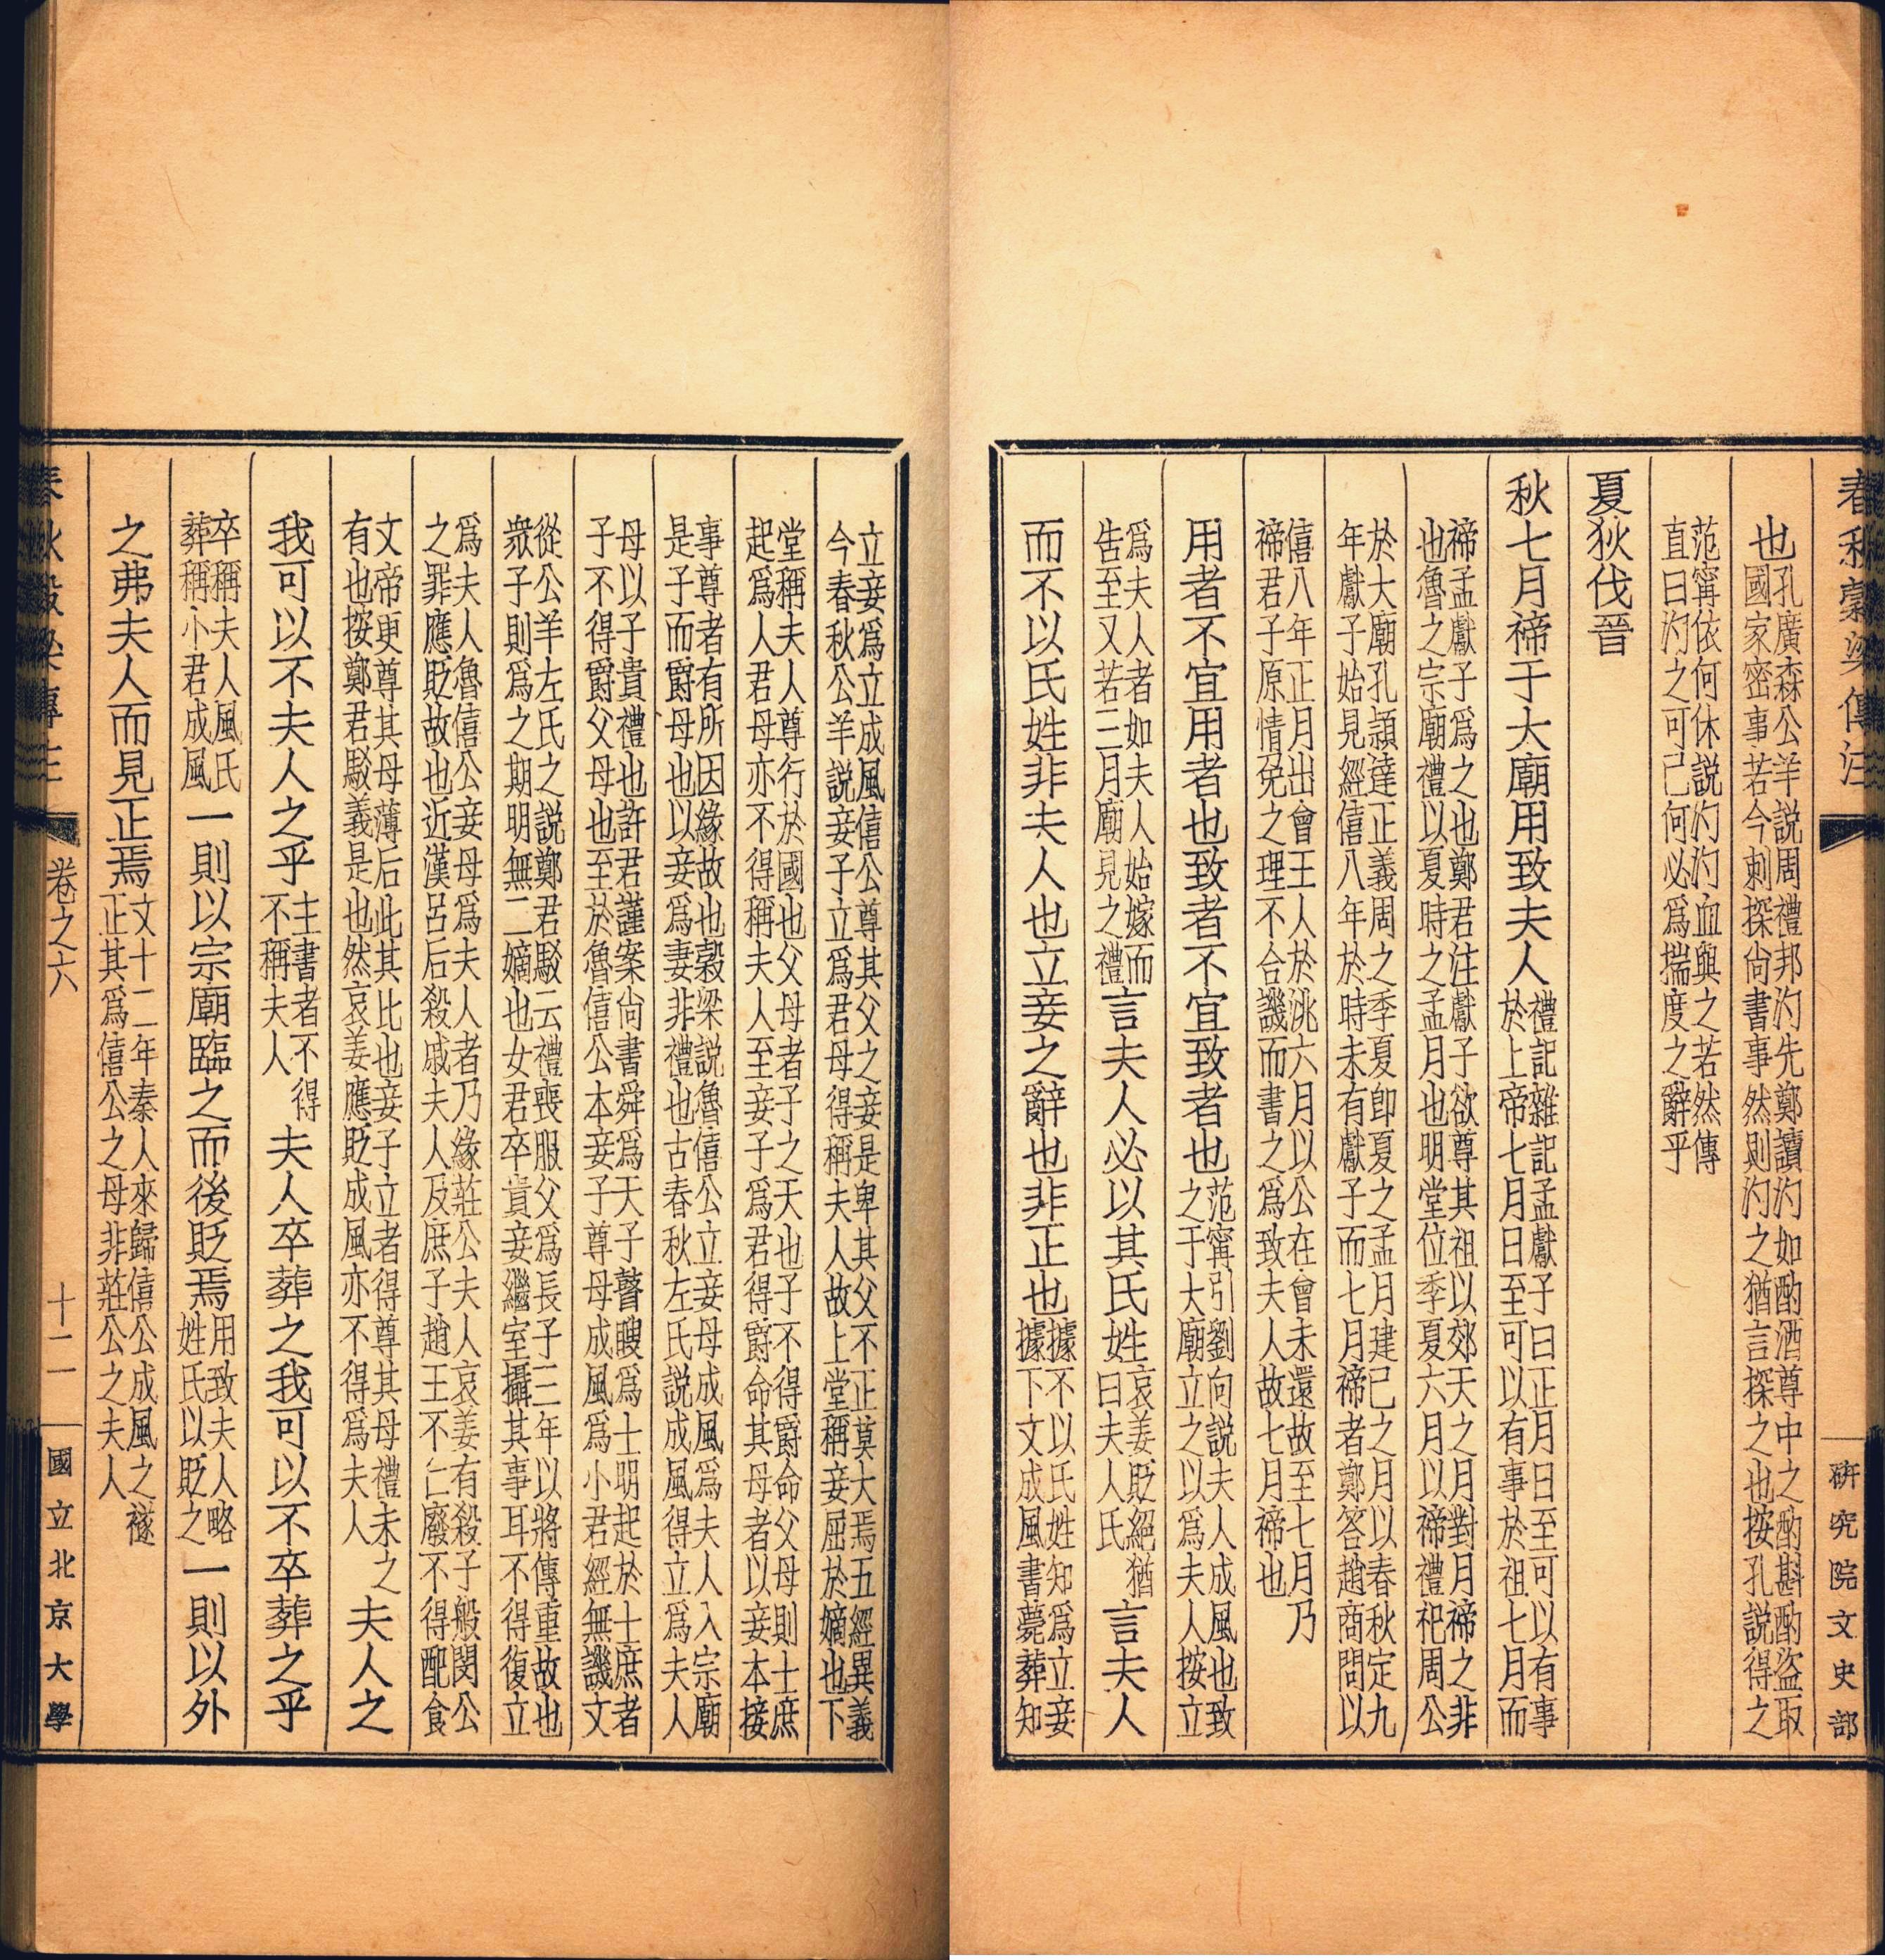 春秋穀梁傳注
研究院文史部
也孔廣森公羊說周禮邦汋先鄭讀汋如酌酒尊中之酌斟酌盜取國家密事若今刺探尚書事然則汋之猶言探之也按孔說得之
范寧依何休說汋汋血與之若然傳直曰汋之可已何必爲揣度之辭乎
夏狄伐晉
秋七月禘于大廟用致夫人禮記雜記孟獻子曰正月日至可以有事於上帝七月日至可以有事於祖七月而
禘孟獻子爲之也鄭君注獻子欲尊其祖以郊天之月對月禘之非也魯之宗廟禮以夏時之孟月也明堂位季夏六月以禘禮祀周公
於大廟孔頴達正義周之季夏卽夏之孟月建巳之月以春秋定九年獻子始見經僖八年於時未有獻子而七月禘者鄭答趙商問以
僖八年正月出會王人於洮六月以公在會未還故至七月乃禘君子原情免之理不合譏而書之爲致夫人故七月禘也
用者不宜用者也致者不宜致者也范寧引劉向說夫人成風也致之于大廟立之以爲夫人按立
爲夫人者如夫人始嫁而告至又若三月廟見之禮言夫人必以其氏姓哀姜貶絕猶曰夫人氏言夫人
而不以氏姓非夫人也立妾之辭也非正也據不以氏姓知爲立妾據下文成風書薨葬知
立妾爲立成風僖公尊其父之妾是卑其父不正莫大焉五經異義今春秋公羊說妾子立爲君母得稱夫人故上堂稱妾屈於嫡也下
堂稱夫人尊行於國也父母者子之天也子不得爵命父母則士庶起爲人君母亦不得稱夫人至妾子爲君得爵命其母者以妾本接
事尊者有所因緣故也穀梁說魯僖公立妾母成風爲夫人入宗廟是子而爵母也以妾爲妻非禮也古春秋左氏說成風得立爲夫人
母以子貴禮也許君謹案尚書舜爲天子瞽瞍爲士明起於士庶者子不得爵父母也至於魯僖公本妾子尊母成風爲小君經無譏文
從公羊左氏之說鄭君駁云禮喪服父爲長子三年以將傳重故也衆子則爲之期明無二嫡也女君卒貴妾繼室攝其事耳不得復立
爲夫人魯僖公妾母爲夫人者乃緣莊公夫人哀姜有殺子般閔公之罪應貶故也近漢呂后殺戚夫人及庶子趙王不仁廢不得配食
文帝更尊其母薄后此其比也妾子立者得尊其母禮未之有也按鄭君駁義是也然哀姜應貶成風亦不得爲夫人夫人之
我可以不夫人之乎主書者不得不稱夫人夫人卒葬之我可以不卒葬之乎
卒稱夫人風氏葬稱小君成風一則以宗廟臨之而後貶焉用致夫人略姓氏以貶之一則以外
之弗夫人而見正焉文十二年秦人來歸僖公成風之襚正其爲僖公之母非莊公之夫人
春秋穀梁傳注
卷之六
十二
國立北京大學